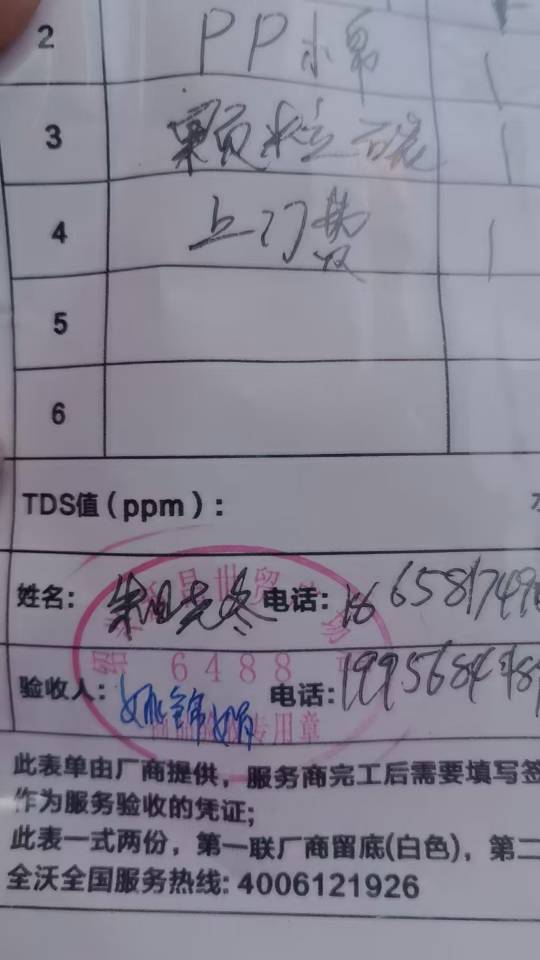 2 PP棉 1
3 颗粒碳 1
4 上门费 1
5
6
TDS值（ppm）：
姓名： 电话：
6488
验收人：姚锦娟 电话：
专用章
此表单由厂商提供，服务商完工后需要填写签
作为服务验收的凭证；
此表一式两份，第一联厂商留底(白色)，第二
全沃全国服务热线: 4006121926